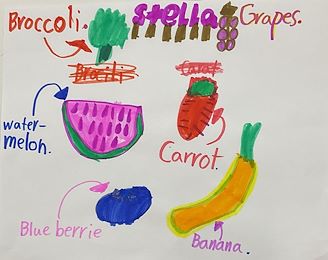 Broccoli. stella Grapes.
Brocili Carrot
water-
melon.
Carrot.
Blue berrie
Banana.